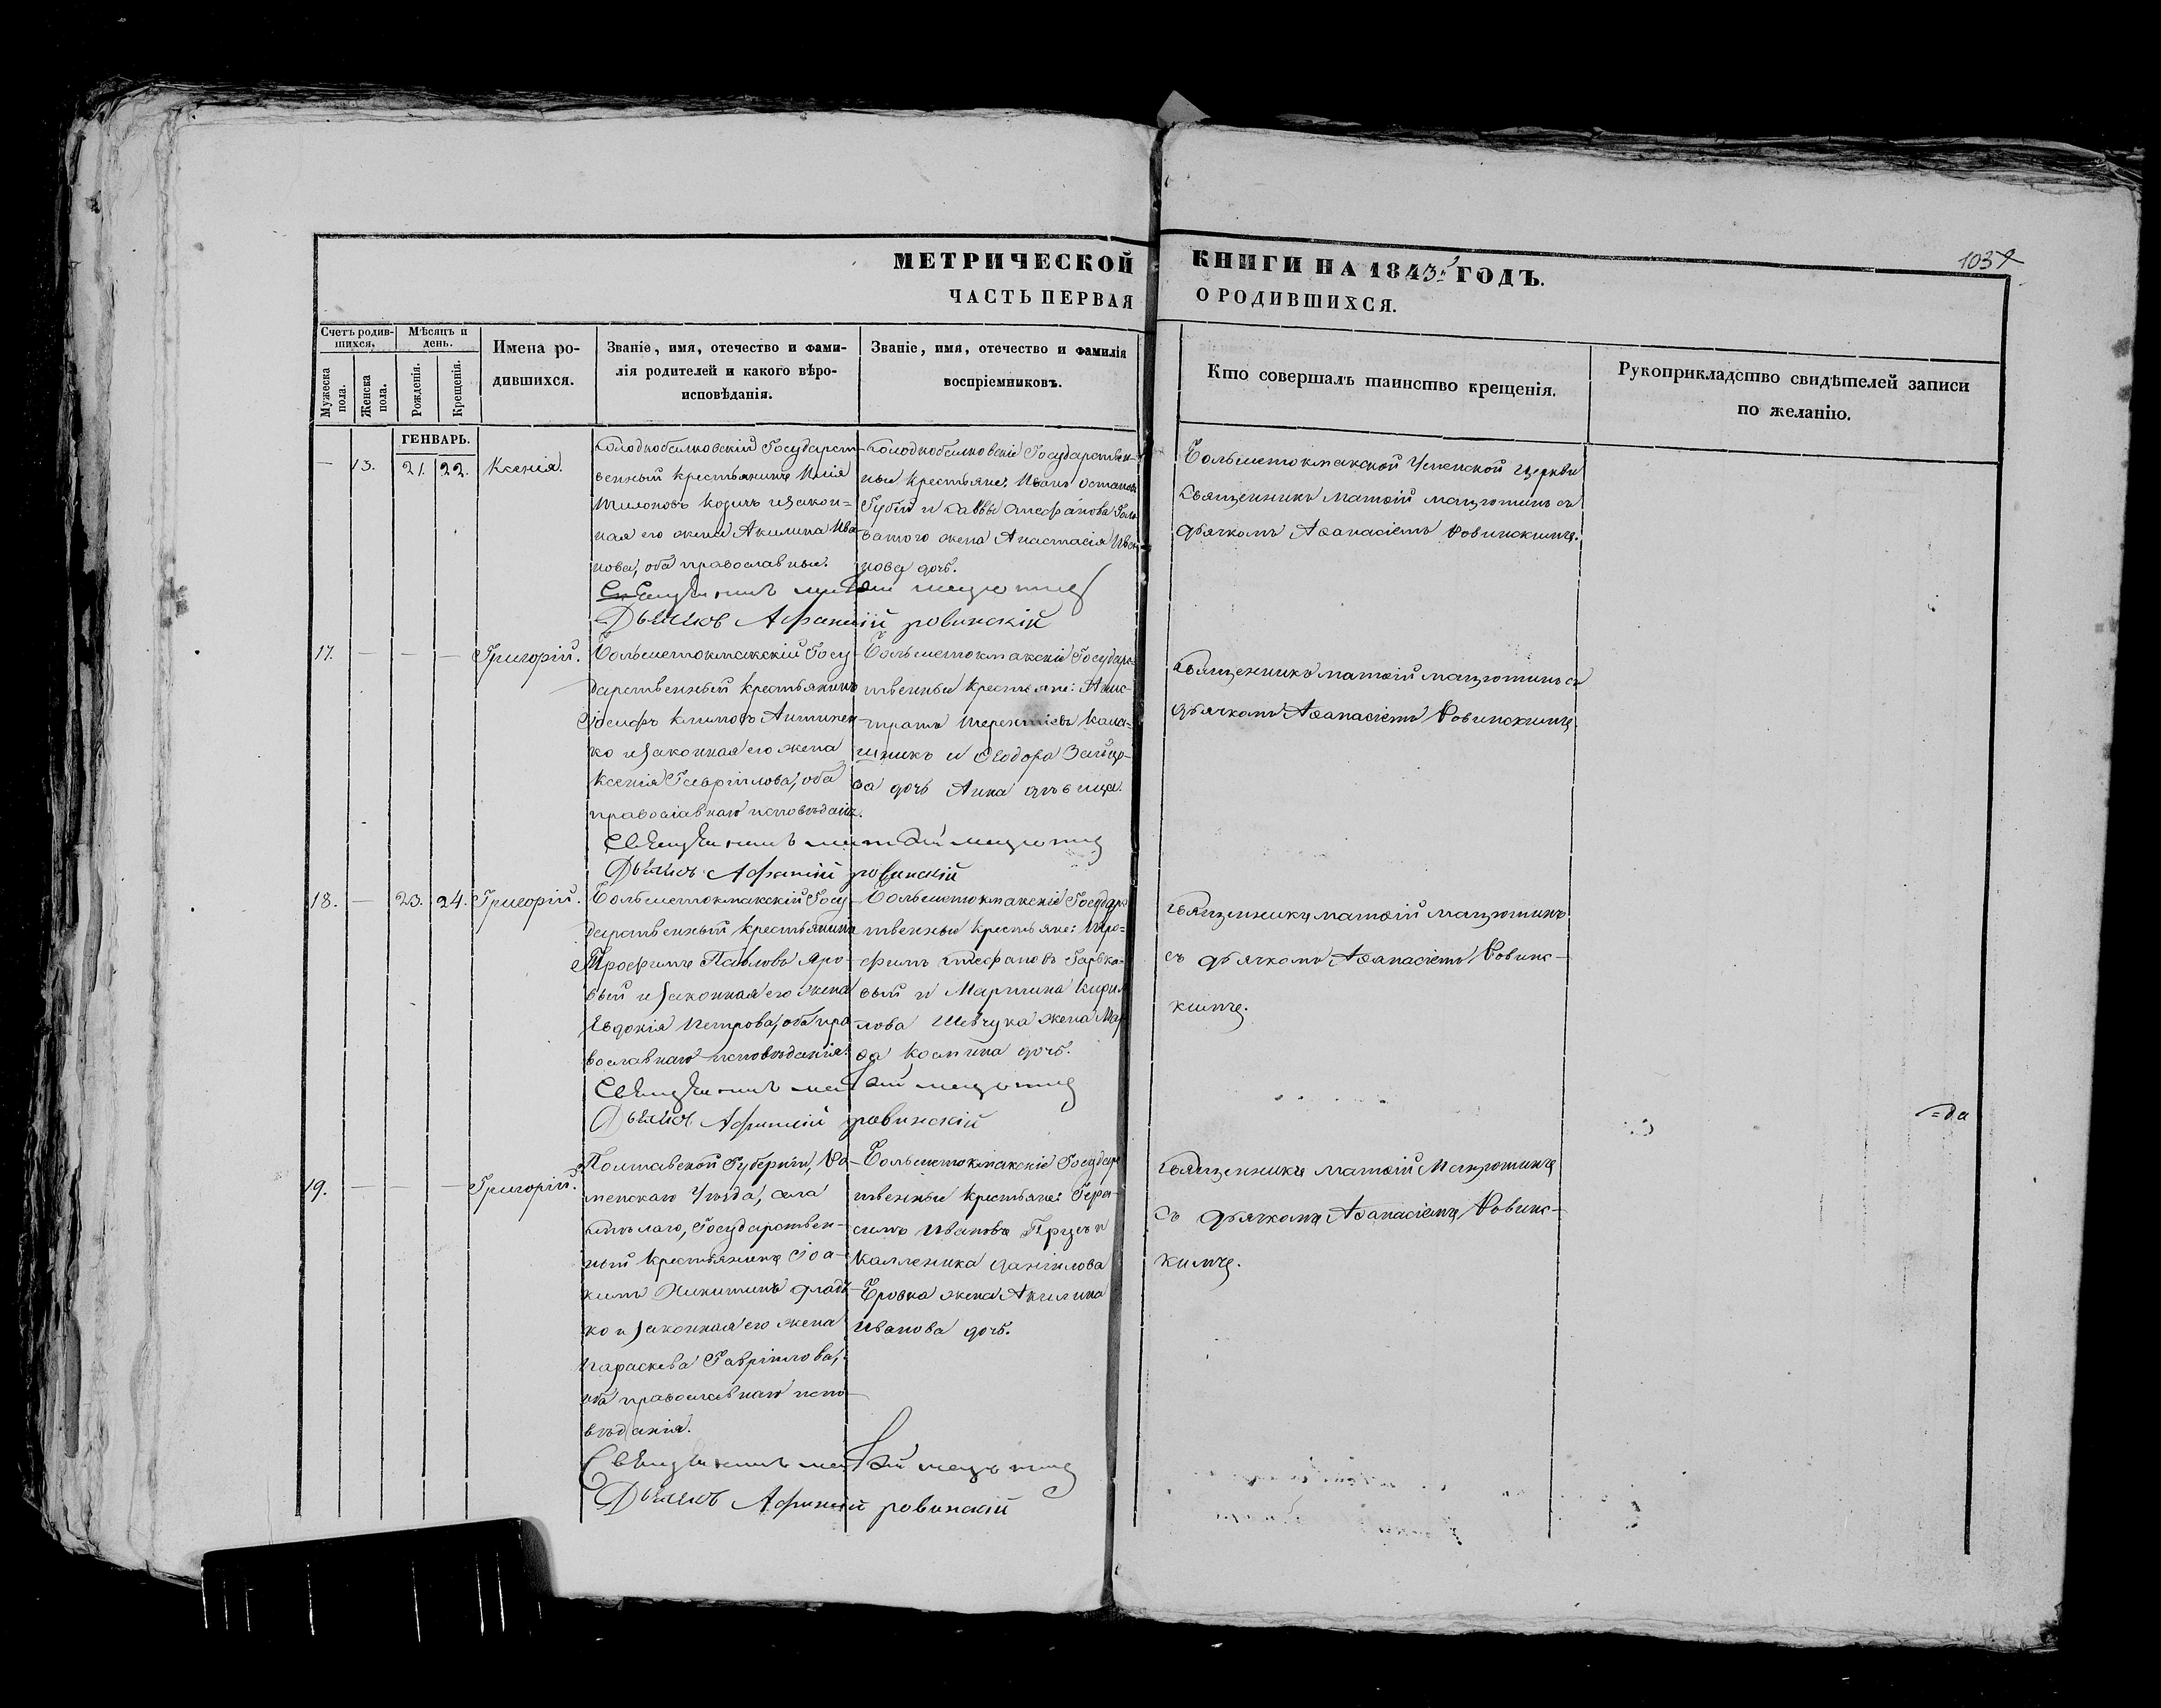 МЕТРИЧЕСКОЙ КНИГИ НА 1843й ГОДЪ.
103
ЧАСТЬ ПЕРВАЯ О РОДИВШИХСЯ.
Счетъ родив-
шихся.
Мужеска пола.
Женска пола.
Мѣсяцъ и
день.
Рожденія.
Крещенія.
Имена ро-
дившихся.
Званіе, имя, отечество и фами-
лія родителей и какого вѣро-
исповѣданія.
Званіе, имя, отечество и фамилія
воспріемниковъ.
Кто совершалъ таинство крещенія.
Рукоприкладство свидѣтелей записи
по желанію.
ГЕНВАРЬ.
— 13. 21. 22. Ксенія.
Колоднобелковскій Государст-
венный крестьянинъ Илія
и закон-
ная его жена Акилина Ива-
нова, оба православные.
Колоднобелковскіе Государствен-
ные крестьяне: Иванъ
и Саввы Стефанова
жена Анастасія
нова дочь.
Большетокмакской Успенской церкви
Священникъ Матѳій Мацютинъ съ
дьячкомъ Аѳанасіемъ Ровинскимъ.
Священникъ Матѳій Мацютинъ
Дьячокъ Афанасій Ровинскій
17. — — — Григорій.
Большетокмакскій Госу-
дарственный крестьянинъ
Іосифъ Климовъ
ко и законная его жена
Ксенія Гавріилова, оба
православнаго исповѣданія.
Большетокмакскіе Государс-
твенные крестьяне:
тратъ Терентіевъ
и Ѳеодора
ва дочь Анна дѣвица.
Священникъ Матѳій Мацютинъ съ
дьячкомъ Аѳанасіемъ Ровинскимъ.
Священникъ Матѳій Мацютинъ
Дьячокъ Афанасій Ровинскій
18. — 23. 24. Григорій.
Большетокмакскій Госу-
дарственный крестьянинъ
Трофимъ Павловъ Яро-
вый и законная его жена
Евдокія Петрова, оба пра-
вославнаго исповѣданія.
Большетокмакскіе Государс-
твенные крестьяне: Тро-
фимъ Стефановъ Гарька-
вый и Мартина Кирил-
лова Шевчука жена Мар-
ѳа Космина дочь.
Священникъ Матѳій Мацютинъ
съ дьячкомъ Аѳанасіемъ Ровинс-
кимъ.
Священникъ Матѳій Мацютинъ
Дьячокъ Афанасій Ровинскій
=да
19. — — — Григорій.
Полтавской Губерніи, Ро-
менскаго Уѣзда, села
Государствен-
ный крестьянинъ Іоа-
кимъ Никитинъ
ко и законная его жена
Параскева Гавріилова,
оба православнаго испо-
вѣданія.
Большетокмакскіе Государс-
твенные крестьяне: Гера-
симъ Ивановъ и
Калленика Даніилова
жена Акилина
Иванова дочь.
Священникъ Матѳій Мацютинъ
съ дьячкомъ Аѳанасіемъ Ровинс-
кимъ.
Священникъ Матѳій Мацютинъ
Дьячокъ Афанасій Ровинскій